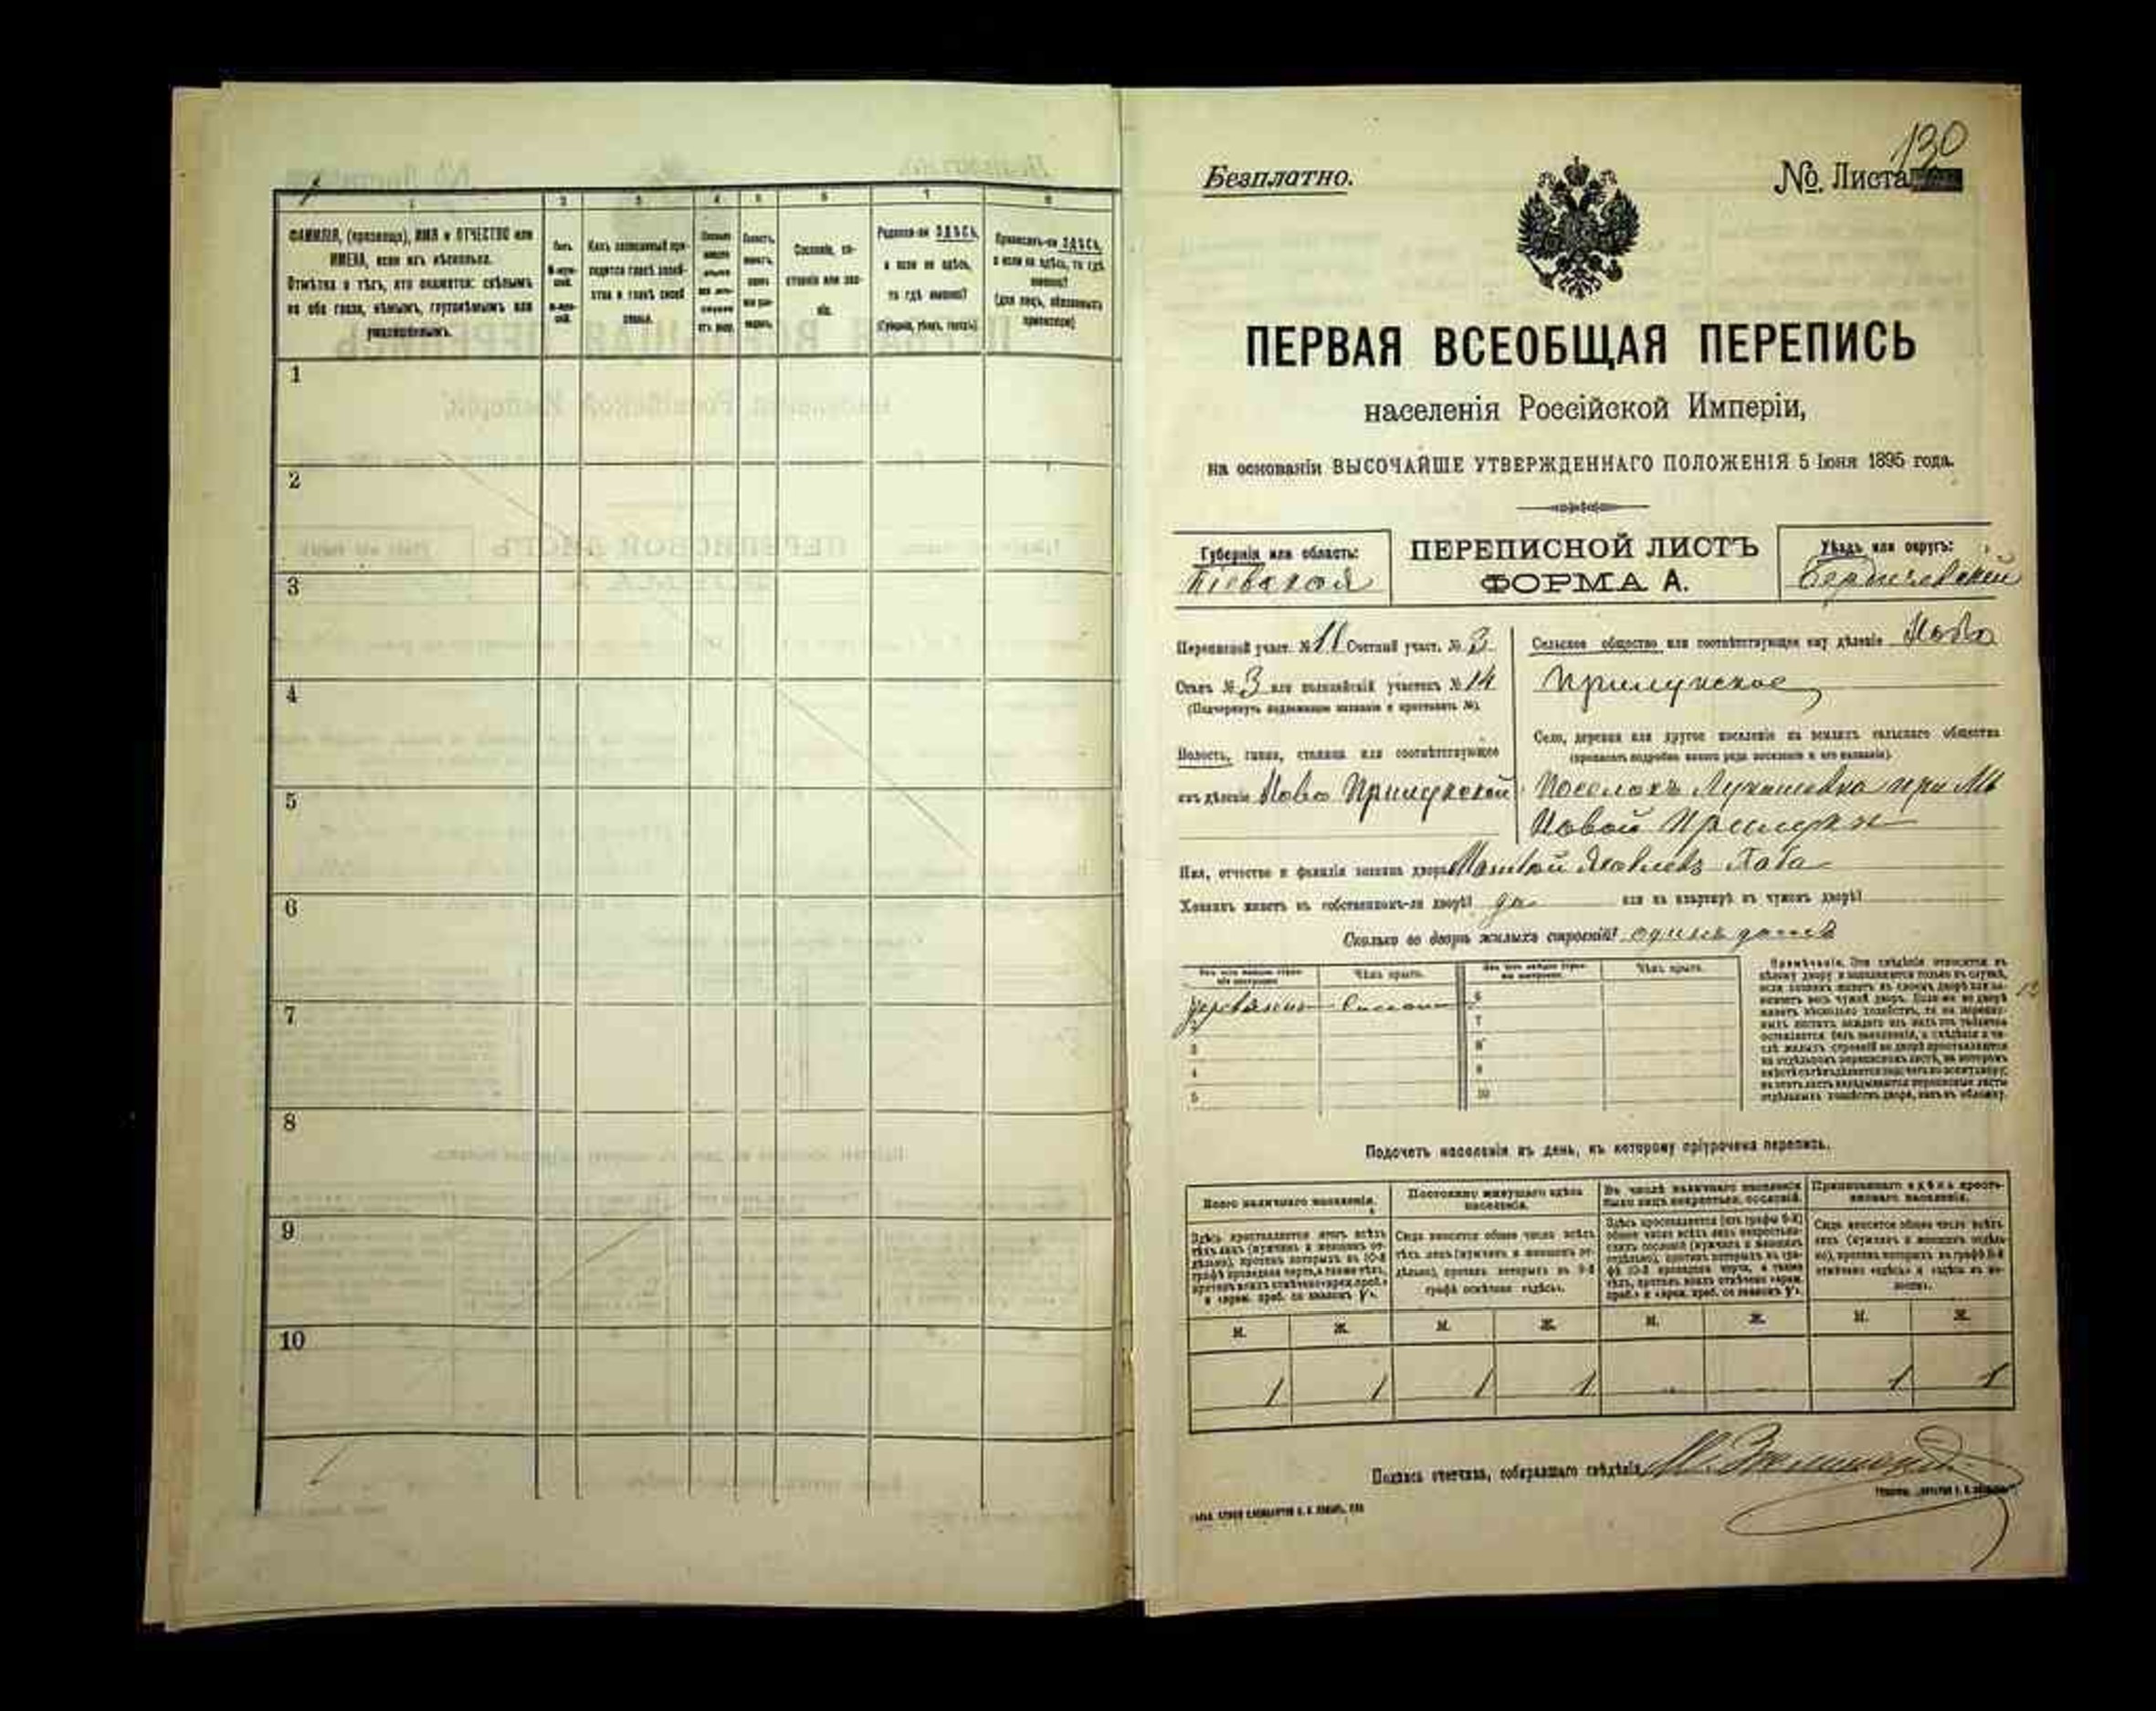 1 2 3 4 5 6 7 8
ФАМИЛІЯ, (прозвище), ИМЯ и ОТЧЕСТВО или
ИМЕНА, если ихъ нѣсколько.
Отмѣтка о тѣхъ, кто окажется: слѣпымъ
на оба глаза, нѣмымъ, глухонѣмымъ или
умалишеннымъ.
Полъ.
Какъ записанный при-
ходится главѣ хозяй-
ства и главѣ своей
семьи.
Сословіе, со-
стояніе или зва-
ніе.
Родился-ли ЗДѢСЬ,
а если не здѣсь,
то гдѣ именно?
(Губернія, уѣздъ, городъ)
Приписанъ-ли ЗДѢСЬ,
а если не здѣсь, то гдѣ
именно?
(для лицъ, обязанныхъ
припиской)
1
2
3
4
5
6
7
8
9
10
130
Безплатно.
№. Листа
ПЕРВАЯ ВСЕОБЩАЯ ПЕРЕПИСЬ
населенія Россійской Имперіи,
на основаніи ВЫСОЧАЙШЕ УТВЕРЖДЕННАГО ПОЛОЖЕНІЯ 5 Іюня 1895 года.
Губернія или область:
Кіевская
ПЕРЕПИСНОЙ ЛИСТЪ
ФОРМА А.
Уѣздъ или округъ:
Бердичевскій
Переписной участ. № 11 Счетный участ. № 3
Станъ № 3 или полицейскій участокъ № 14
(Подчеркнуть подлежащее названіе и проставить №).
Волость, гмина, станица или соотвѣтствующее
имъ дѣленіе Ново Прилукской
Сельское общество или соотвѣтствующее ему дѣленіе Ново
Прилукское
Село, деревня или другое поселеніе на земляхъ сельскаго общества
(прописать подробно какого рода поселеніе и его названіе).
Поселокъ Лукашевка при М
Новой Прилукѣ
Имя, отчество и фамилія хозяина двора Матвѣй Яковлевъ Баба
Хозяинъ живетъ въ собственномъ-ли дворѣ? да или на квартирѣ въ чужомъ дворѣ?
Сколько во дворѣ жилыхъ строеній? одинъ домъ
Изъ чего каждое строе-
ніе построено
Чѣмъ крыто.
Изъ чего каждое строе-
ніе построено
Чѣмъ крыто.
деревянное Соломой 6
7
3 8
4 9
5 10
Примѣчаніе. Эти свѣдѣнія относятся къ
цѣлому двору и заполняются только въ случаѣ,
если хозяинъ живетъ въ своемъ дворѣ или за-
нимаетъ весь чужой дворъ. Если-же во дворѣ
живетъ нѣсколько хозяйствъ, то на перепис-
ныхъ листахъ каждаго изъ нихъ эта табличка
оставляется безъ заполненія, а свѣдѣнія о чи-
слѣ жилыхъ строеній во дворѣ проставляются
на отдѣльномъ переписномъ листѣ, на которомъ
вмѣстѣ съ тѣмъ дѣлается подсчетъ по всему двору;
въ этотъ листъ вкладываются переписные листы
отдѣльныхъ хозяйствъ двора, какъ въ обложку.
Подсчетъ населенія въ день, къ которому пріурочена перепись.
Всего наличнаго населенія.
Здѣсь проставляется итогъ всѣхъ
тѣхъ лицъ (мужчинъ и женщинъ от-
дѣльно), противъ которыхъ въ 10-й
графѣ проведена черта, а также тѣхъ,
противъ коихъ отмѣчено «врем. преб.»
и «врем. преб. со знакомъ V».
Постоянно живущаго здѣсь
населенія.
Сюда вносится общее число всѣхъ
тѣхъ лицъ (мужчинъ и женщинъ от-
дѣльно), противъ которыхъ въ 9-й
графѣ отмѣчено «здѣсь».
Въ числѣ наличнаго населенія
было лицъ некрестьян. сословій.
Здѣсь проставляется (изъ графы 6-й)
общее число всѣхъ лицъ некрестьян-
скихъ сословій (мужчинъ и женщинъ
отдѣльно), противъ которыхъ въ гра-
фѣ 10-й проведена черта, а также
тѣхъ, противъ коихъ отмѣчено «врем.
преб.» и «врем. преб. со знакомъ V».
Приписаннаго здѣсь кресть-
янскаго населенія.
Сюда вносится общее число всѣхъ
лицъ (мужчинъ и женщинъ отдѣль-
но), противъ которыхъ въ графѣ 8-й
отмѣчено «здѣсь» и «здѣсь въ во-
лости».
М. Ж. М. Ж. М. Ж. М. Ж.
1 1 1 1 1 1
Подпись счетчика, собиравшаго свѣдѣнія